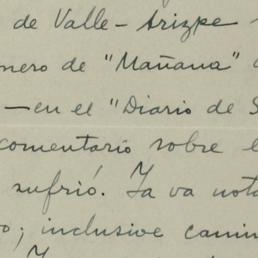 de Valle-Arizpe
nero de "Mañana"
—en el "Diario de S
comentario sobre e
sufrió. Ya va nota
o; inclusive camin